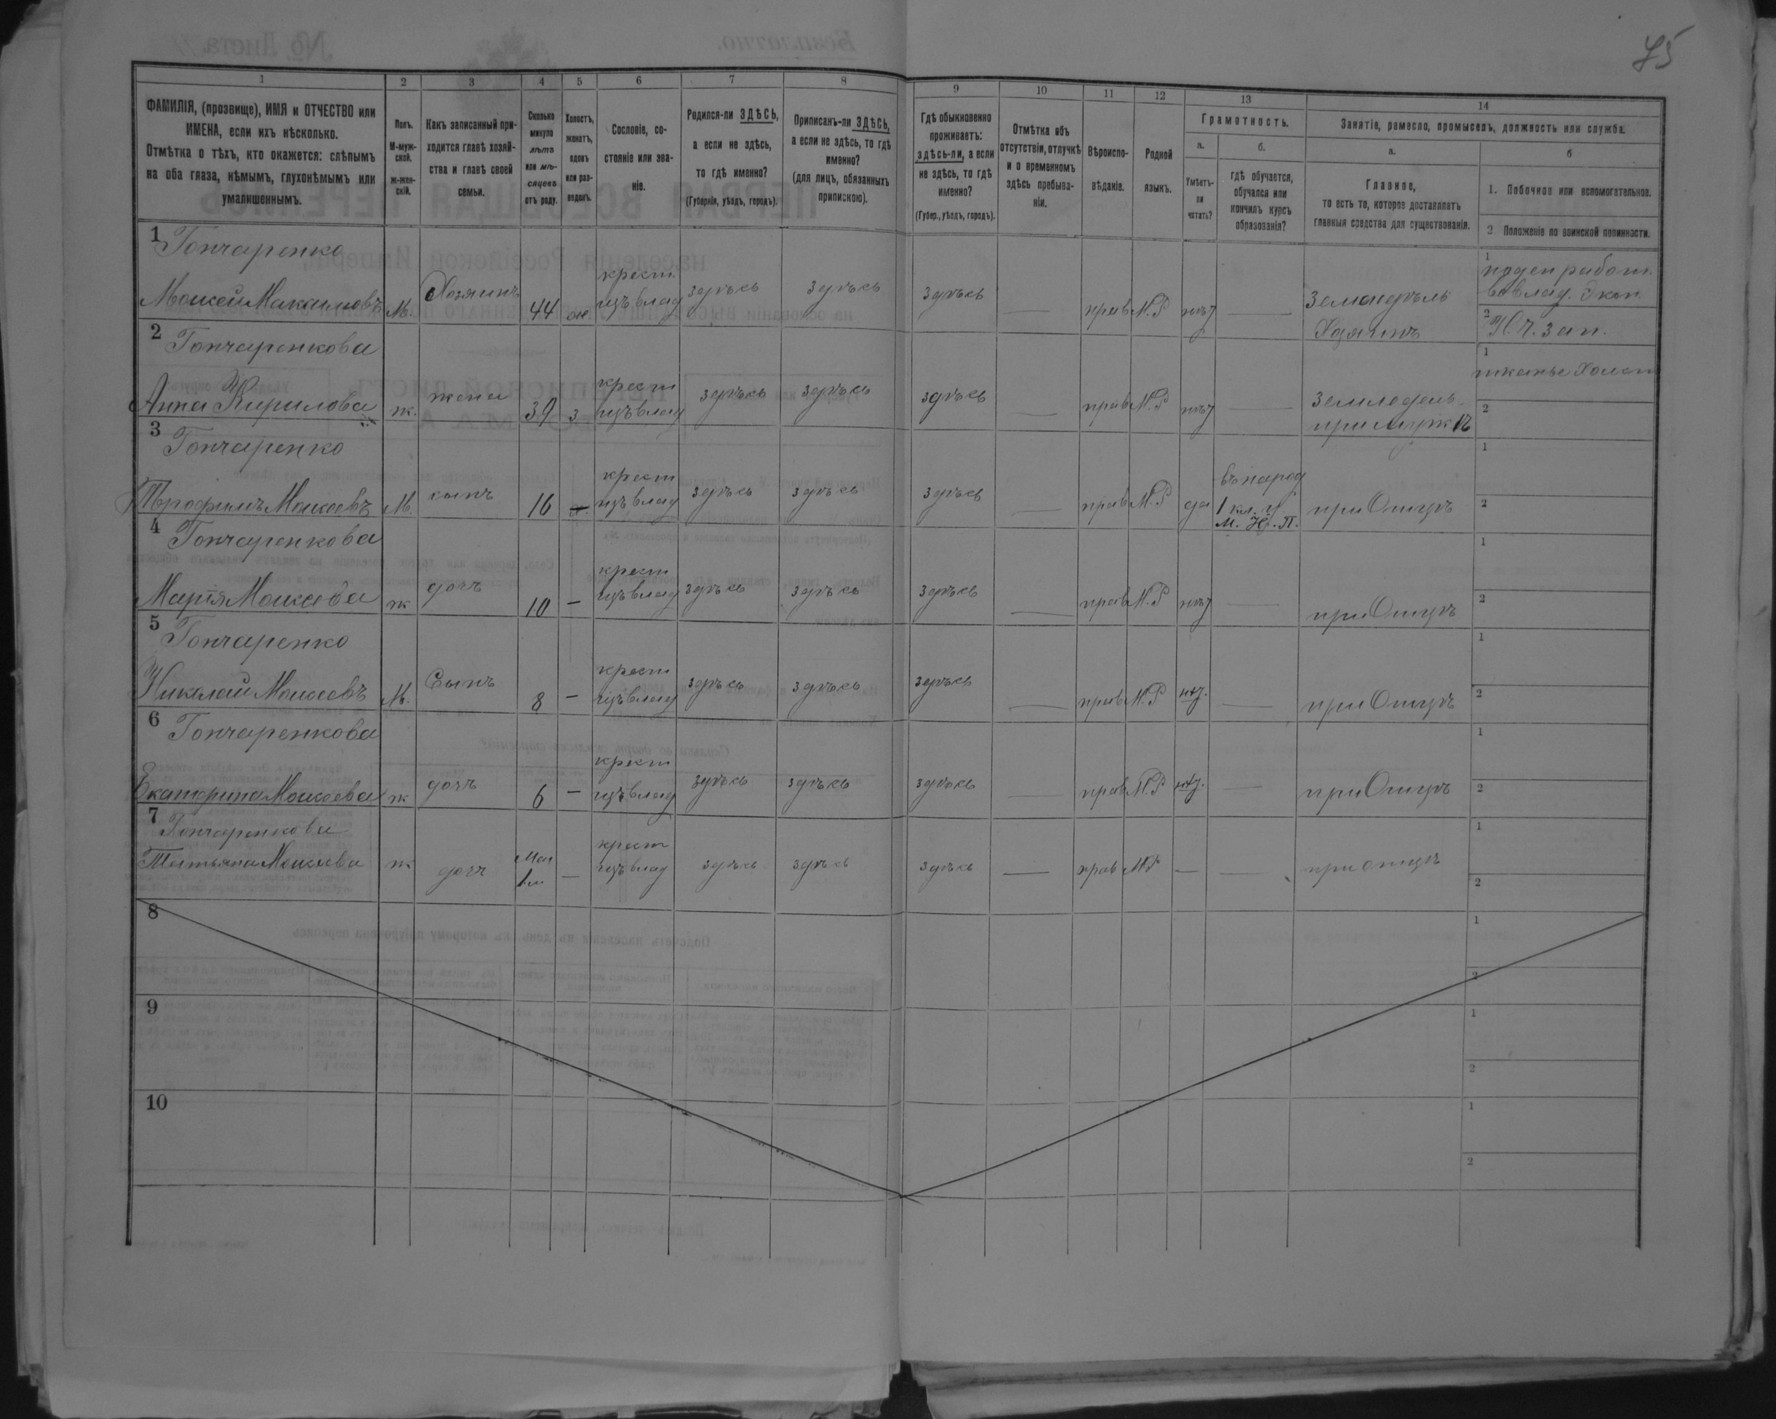 75
1 2 3 4 5 6 7 8 9 10 11 12 13 14
ФАМИЛІЯ, (прозвище), ИМЯ и ОТЧЕСТВО или
ИМЕНА, если ихъ нѣсколько.
Отмѣтка о тѣхъ, кто окажется: слѣпымъ
на оба глаза, нѣмымъ, глухонѣмымъ или
умалишеннымъ.
Полъ.
М-муж-
ской.
ж-жен-
скій.
Какъ записанный при-
ходится главѣ хозяй-
ства и главѣ своей
семьи.
Сколько
минуло
лѣтъ
или мѣ-
сяцевъ
отъ роду.
Холостъ,
женатъ,
вдовъ
или раз-
веденъ.
Сословіе, со-
стояніе или зва-
ніе.
Родился-ли ЗДѢСЬ,
а если не здѣсь,
то гдѣ именно?
(Губернія, уѣздъ, городъ).
Приписанъ-ли ЗДѢСЬ,
а если не здѣсь, то гдѣ
именно?
(для лицъ, обязанныхъ
припискою).
Гдѣ обыкновенно
проживаетъ:
здѣсь-ли, а если
не здѣсь, то гдѣ
именно?
(Губер., уѣздъ, городъ).
Отмѣтка объ
отсутствіи, отлучкѣ
и о временномъ
здѣсь пребыва-
ніи.
Вѣроиспо-
вѣданіе.
Родной
языкъ.
Грамотность.
а.
Умѣетъ-
ли
читать?
б.
гдѣ обучается,
обучался или
кончилъ курсъ
образованія?
Занятіе, ремесло, промыселъ, должность или служба.
а.
Главное,
то есть то, которое доставляетъ
главныя средства для существованія.
б
1. Побочное или вспомогательное.
2 Положеніе по воинской повинности.
1 Гончаренко
Моисей Максимовъ М. Хозяинъ 44 ж крест
изъ влад здѣсь здѣсь здѣсь — прав М.Р нѣт — Земледѣль
Хозяинъ
1 поден работ.
2
2 Гончаренкова
Анна Кирилова ж. жена 39 з крест
изъ влад здѣсь здѣсь здѣсь — прав М.Р нѣт — Земледель.
при муж
1 тканье Холст
2
3 Гончаренко
Трофимъ Моисеевъ М. сынъ 16 крест
изъ влад здѣсь здѣсь здѣсь — прав М.Р да въ народ
1 кл. у
М. Н. П. при Отцѣ
1
2
4 Гончаренкова
Марія Моисеева ж дочь 10 — крест
изъ влад здѣсь здѣсь здѣсь — прав М.Р нѣт — при Отцѣ
1
2
5 Гончаренко
Николай Моисеевъ М. Сынъ 8 — крест
изъ влад здѣсь здѣсь здѣсь — прав М.Р нѣт. — при Отцѣ
1
2
6 Гончаренкова
Екатерина Моисеева ж дочь 6 — крест
изъ влад здѣсь здѣсь здѣсь — прав М.Р нѣт. — при Отцѣ
1
2
7 Гончаренкова
Татьяна Моисеева ж дочь — крест
изъ влад здѣсь здѣсь здѣсь — прав М.Р — — при отцѣ
1
2
8
1
2
9
1
2
10
1
2